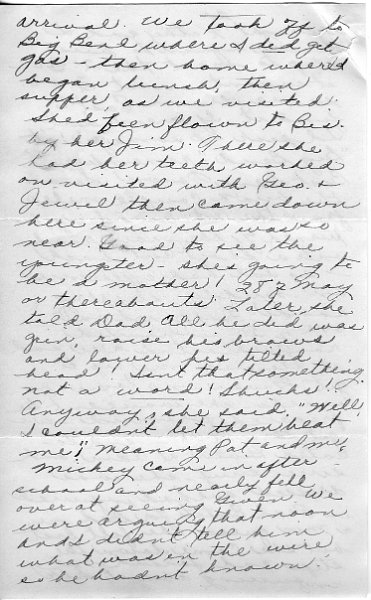 arrival. We took 7f to
Big Beal where I did get
gas - then home where I
began lunch, then
supper, as we visited.
She'd been flown to Bis.
by her Jim. There she
had her teeth worked
on visited with Geo. +
Jewel then came down
here since she was so
near. Good to see the
youngster - she's going to
be a mother! 28 May
or thereabouts. Later, she
told Dad, All he did was
grin, raise his brows
and lower his tilted
head! Isn't that something
not a word! Shucks!
Anyway, she said, "Well
I couldn't let them beat
me", meaning Pat and me,
Mickey came in after
school and nearly fell
over at seeing Gwen. We
were arguing that noon
and I didn't tell him
what was in the wire
so he hadn't known.